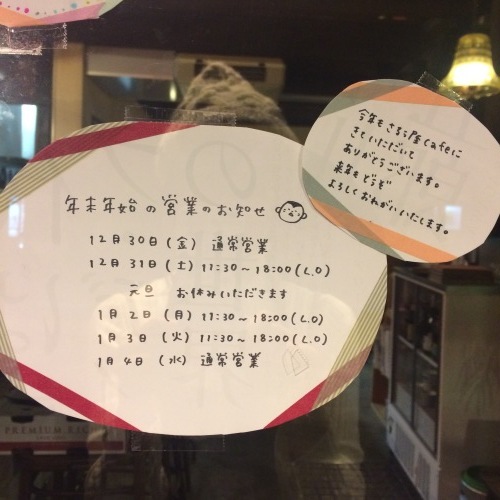 年末年始の営業のお知せ
12月30日(金) 通常営業
12月31日(土) 11:30~18:00(L.O)
元旦 お休みいただきます
1月2日(月) 11:30~18:00(L.O)
1月3日(火) 11:30~18:00(L.O)
1月4日(水) 通常営業
今年もさる屋cafeに
きていただいて
ありがとうございます。
来年もどうぞ
よろしくおねがいいたします。
PREMIUM